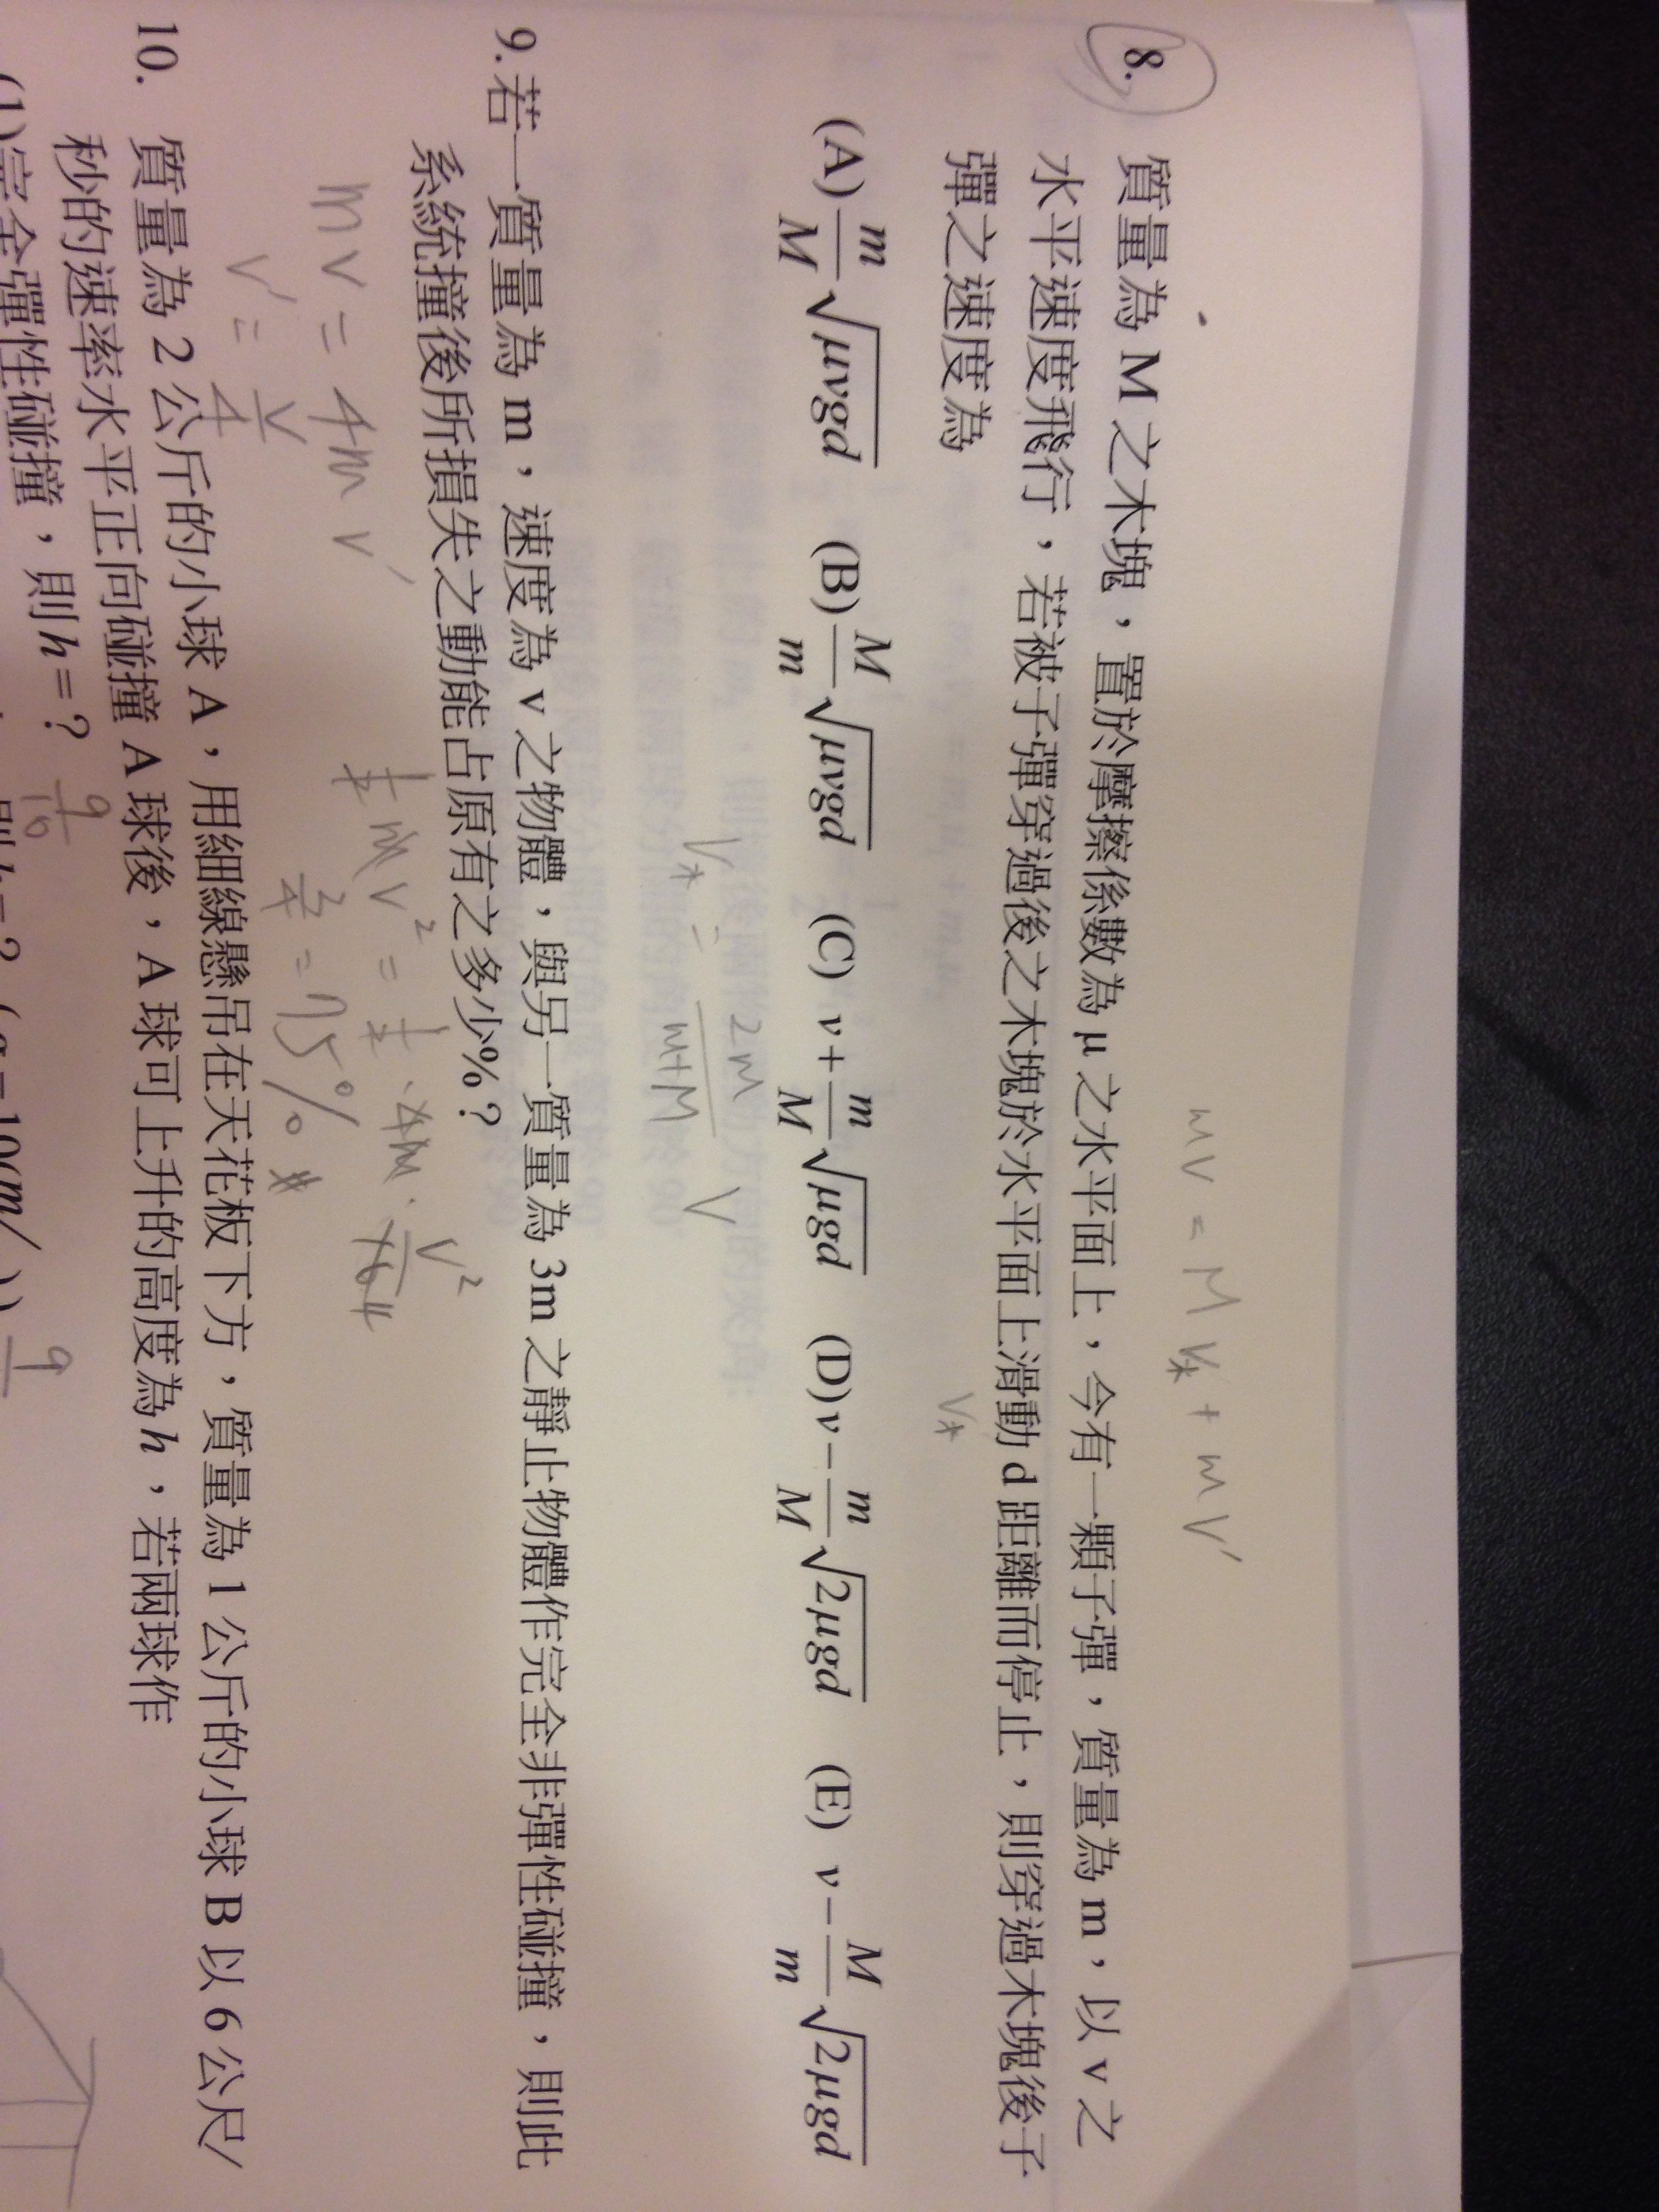 mv = M V木 + m V'
8. 質量為 M 之木塊，置於摩擦係數為 μ 之水平面上，今有一顆子彈，質量為 m，以 v 之
水平速度飛行，若被子彈穿過後之木塊於水平面上滑動 d 距離而停止，則穿過木塊後子
彈之速度為
V木
(A) \frac{m}{M}\sqrt{μvgd} (B) \frac{M}{m}\sqrt{μvgd} (C) v+\frac{m}{M}\sqrt{μgd} (D) v−\frac{m}{M}\sqrt{2μgd} (E) v−\frac{M}{m}\sqrt{2μgd}
V木 = \frac{2m}{m+M} V
9.若一質量為 m，速度為 v 之物體，與另一質量為 3m 之靜止物體作完全非彈性碰撞，則此
系統撞後所損失之動能占原有之多少%？
mv = 4m v'
v' = \frac{v}{4}
\frac{1}{2} m v² = \frac{1}{2} · 4m · \frac{v²}{16 4}
\frac{3}{4} = 75%
10. 質量為 2 公斤的小球 A，用細線懸吊在天花板下方，質量為 1 公斤的小球 B 以 6 公尺/
秒的速率水平正向碰撞 A 球後，A 球可上升的高度為 h，若兩球作
(1)完全彈性碰撞，則 h = ? \frac{9}{10}